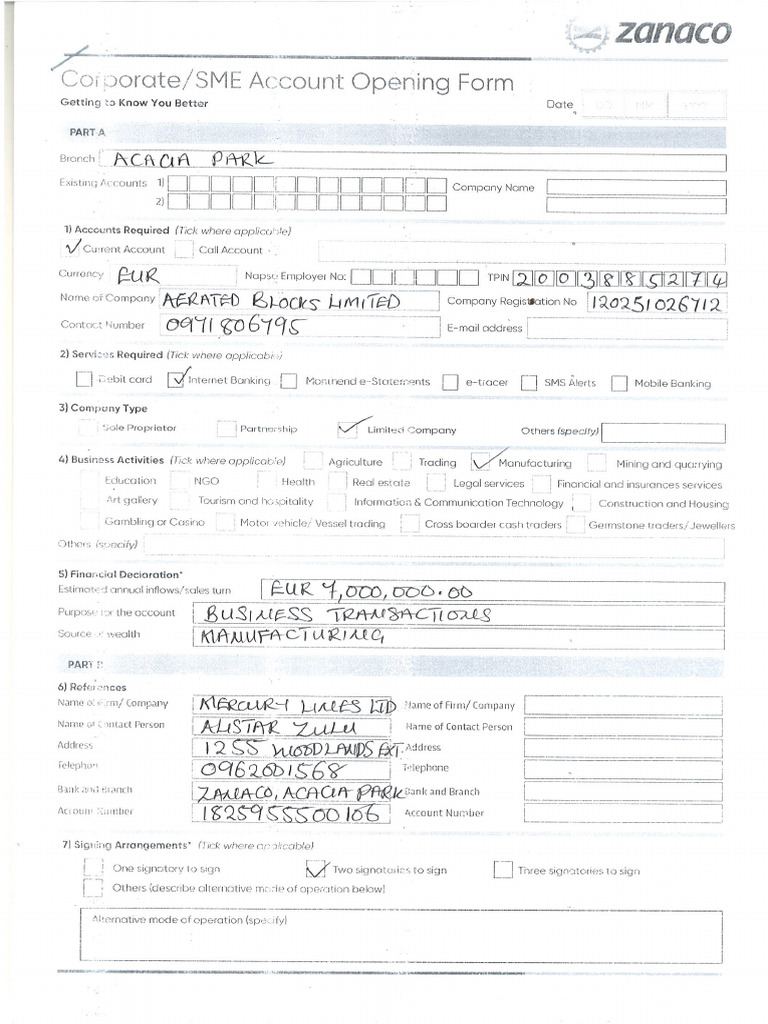 zanaco
Corporate/SME Account Opening Form
Getting to Know You Better
Date
PART A
Branch ACACIA PARK
Existing Accounts 1) Company Name
2)
1) Accounts Required (Tick where applicable)
Current Account Call Account
Currency EUR Napsa Employer No: TPIN 2003885274
Name of Company AERATED BLOCKS LIMITED Company Registration No 120251026712
Contact Number 0971806795 E-mail address
2) Services Required (Tick where applicable)
Debit card Internet Banking Monthend e-Statements e-tracer SMS Alerts Mobile Banking
3) Company Type
Sole Proprietor Partnership Limited Company Others (specify)
4) Business Activities (Tick where applicable) Agriculture Trading Manufacturing Mining and quarrying
Education NGO Health Real estate Legal services Financial and insurances services
Art gallery Tourism and hospitality Information & Communication Technology Construction and Housing
Gambling or Casino Motor vehicle/ Vessel trading Cross boarder cash traders Gemstone traders/Jewellers
Others (specify)
5) Financial Declaration*
Estimated annual inflows/sales turn EUR 7,000,000.00
Purpose for the account BUSINESS TRANSACTIONS
Source of wealth MANUFACTURING
PART B
6) References
Name of Firm/ Company MERCURY LINES LTD Name of Firm/ Company
Name of Contact Person ALISTAR ZULU Name of Contact Person
Address 1255 WOODLANDS EXT. Address
Telephone 0962001568 Telephone
Bank and Branch ZANACO, ACACIA PARK Bank and Branch
Account Number 1825955500106 Account Number
7) Signing Arrangements* (Tick where applicable)
One signatory to sign Two signatories to sign Three signatories to sign
Others (describe alternative mode of operation below)
Alternative mode of operation (specify)